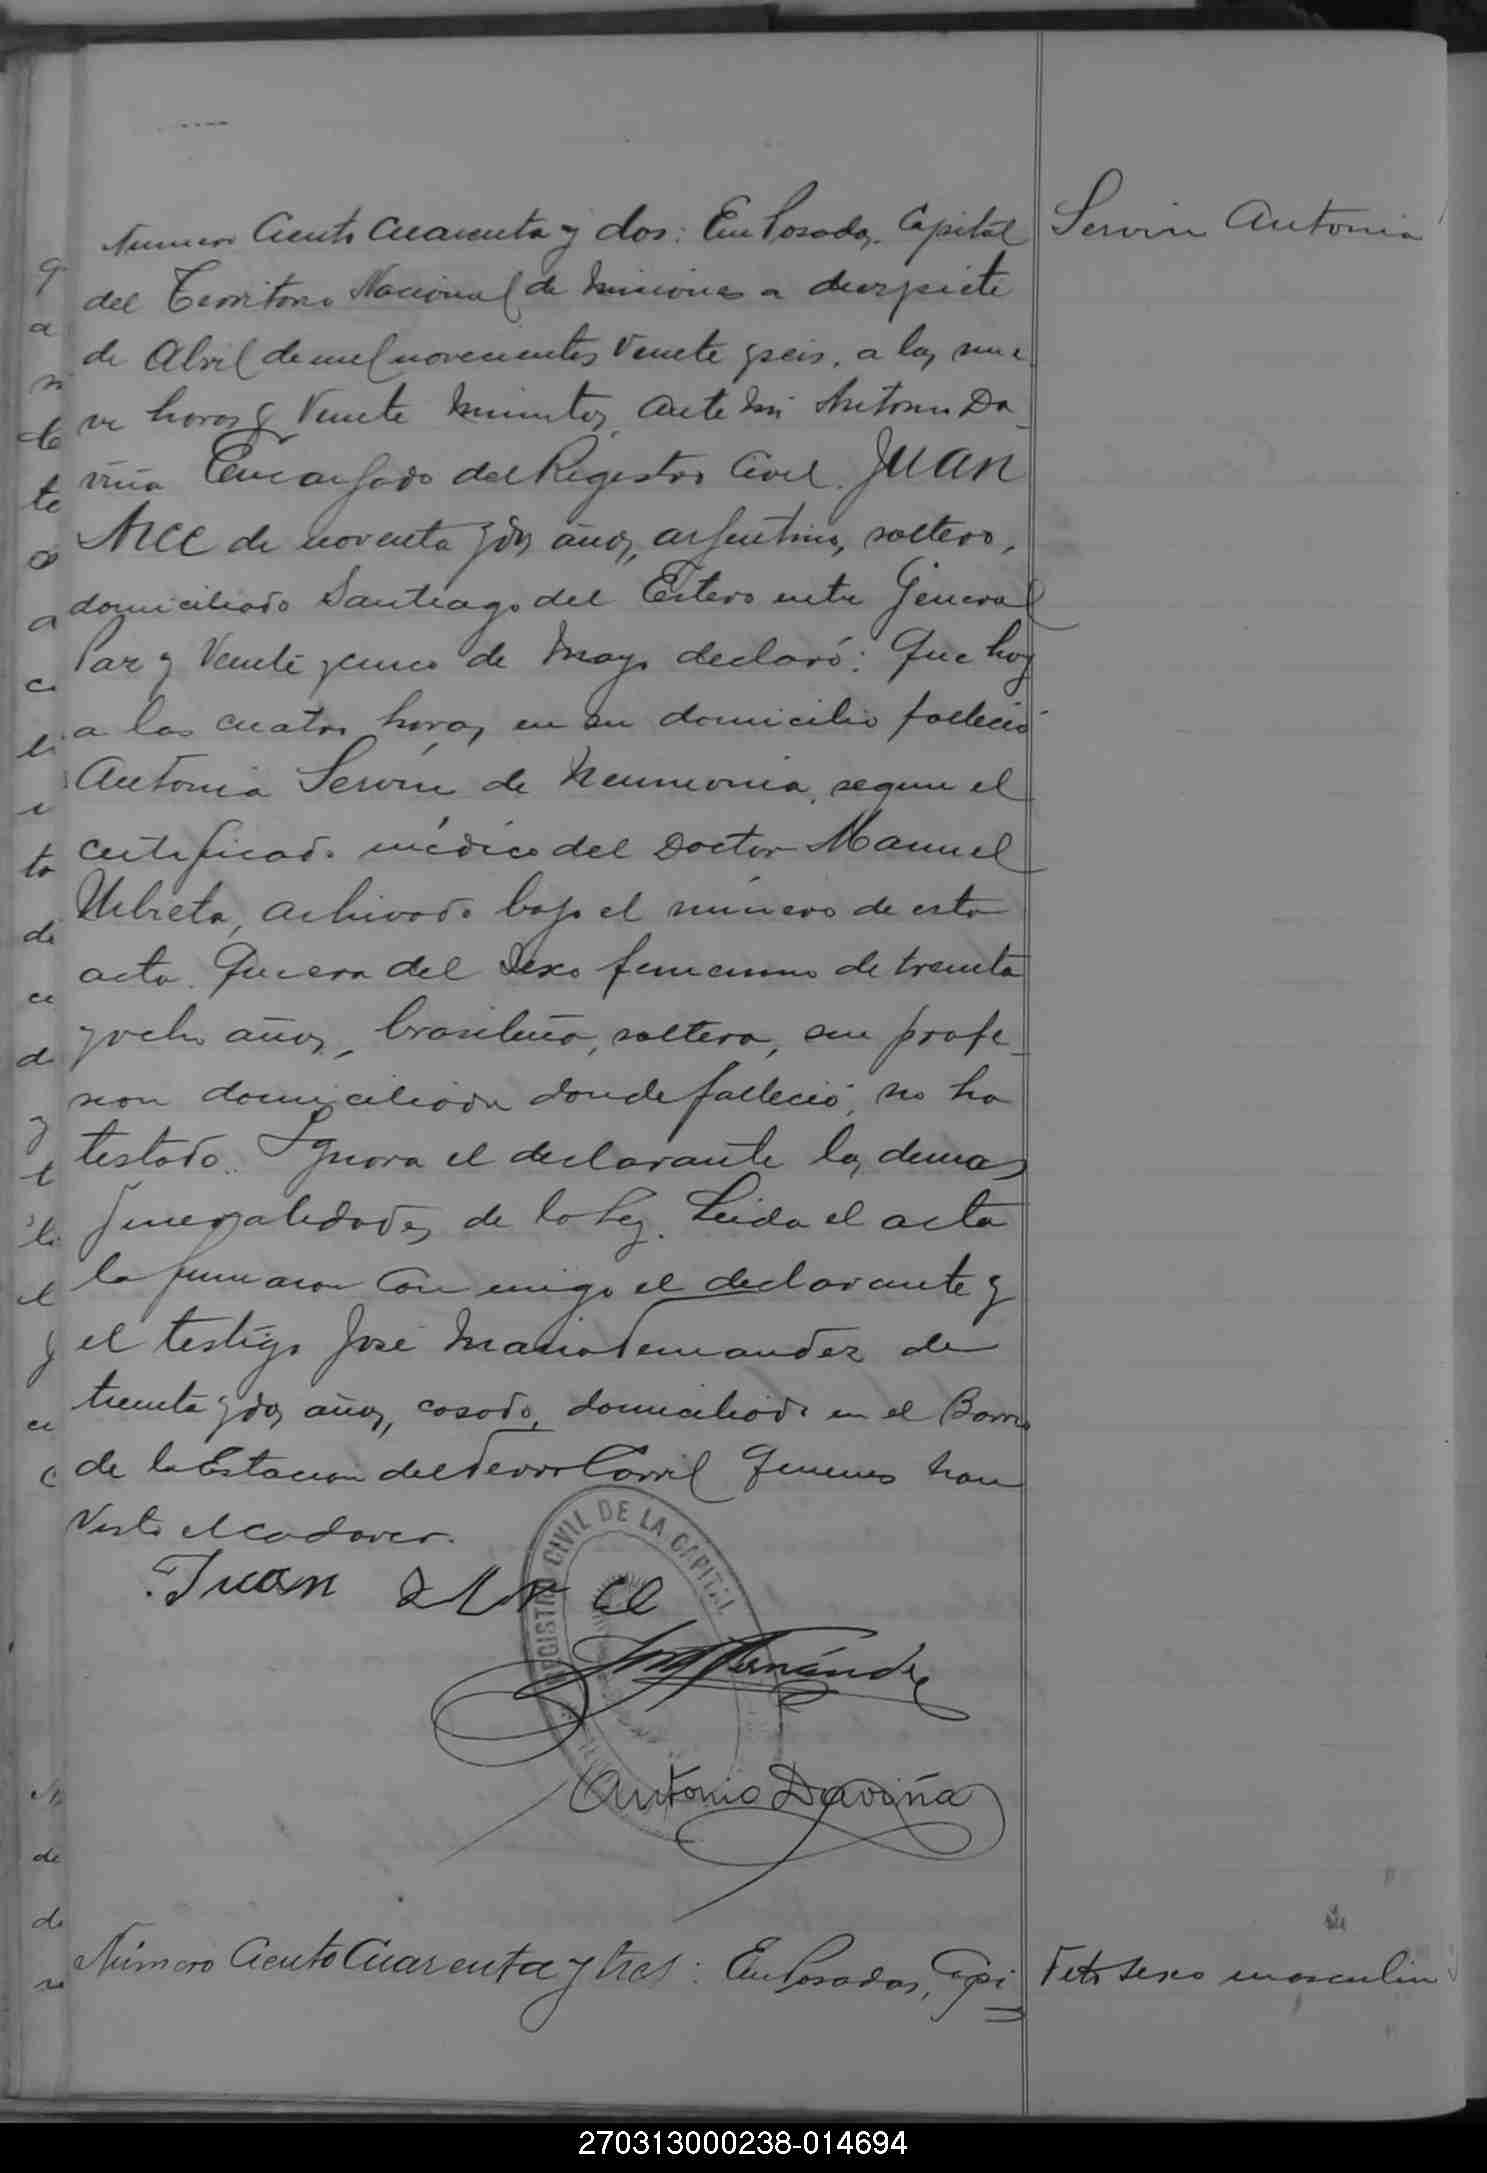 Servin Antonia
Numero Ciento Cuarenta y dos: En Posadas, Capital
del Territorio Nacional de Misiones a diez y siete
de Abril de mil novecientos Veinte y seis, a las nue
ve horas y Veinte minutos, ante mi Antonio Da_
viña Encargado del Registro Civil. JUAN
ARCE de noventa y dos años, argentino, soltero,
domiciliado Santiago del Estero entre General
Paz y Veinte y cinco de Mayo declaró: Que hoy
a las cuatro horas, en su domicilio falleció
Antonia Servin de Neumonia, segun el
certificado médico del Doctor Manuel
Urbieta, archivado bajo el número de esta
acta. Que era del Sexo femenino de treinta
y ocho años, brasileña, soltera, sin profe_
sion domiciliada donde falleció, no ha
testado. Ignora el declarante las demas
generalidades de la Ley. Leida el acta
la firmaron Con migo el declarante y
el testigo José Maria Fernandez de
treinta y dos años, casado, domiciliado en el Barrio
de la Estacion del Ferro Carril Quienes han
Visto el cadaver.
Juan Arce
REGISTRO CIVIL DE LA CAPITAL
José M Fernández
Antonio Daviña
Número Ciento Cuarenta y tres: En Posadas, Capi
Feto sexo masculino
270313000238-014694